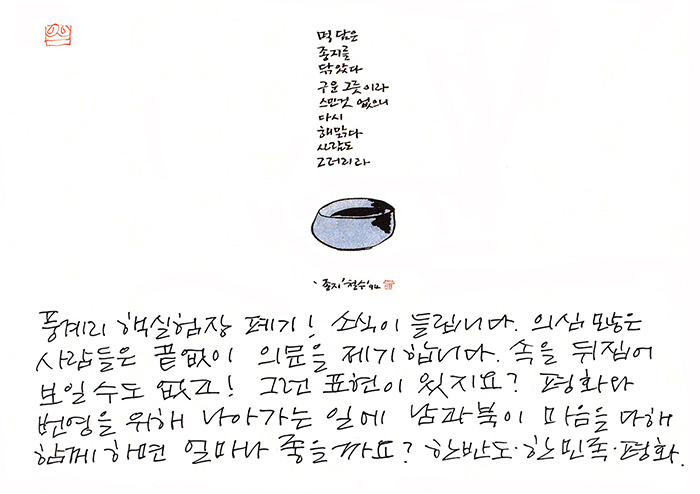 먹 담은
종지를
닦았다
구운 그릇이라
스민것 없으니
다시
해맑다
사람도
그러리라
종지 철수 '94
풍계리 핵실험장 폐기! 소식이 들립니다. 의심 많은
사람들은 끝없이 의문을 제기합니다. 속을 뒤집어
보일 수도 없고! 그런 표현이 있지요? 평화와
번영을 위해 나아가는 일에 남과북이 마음을 다해
함께 하면 얼마나 좋을까요? 한반도·한민족·평화.